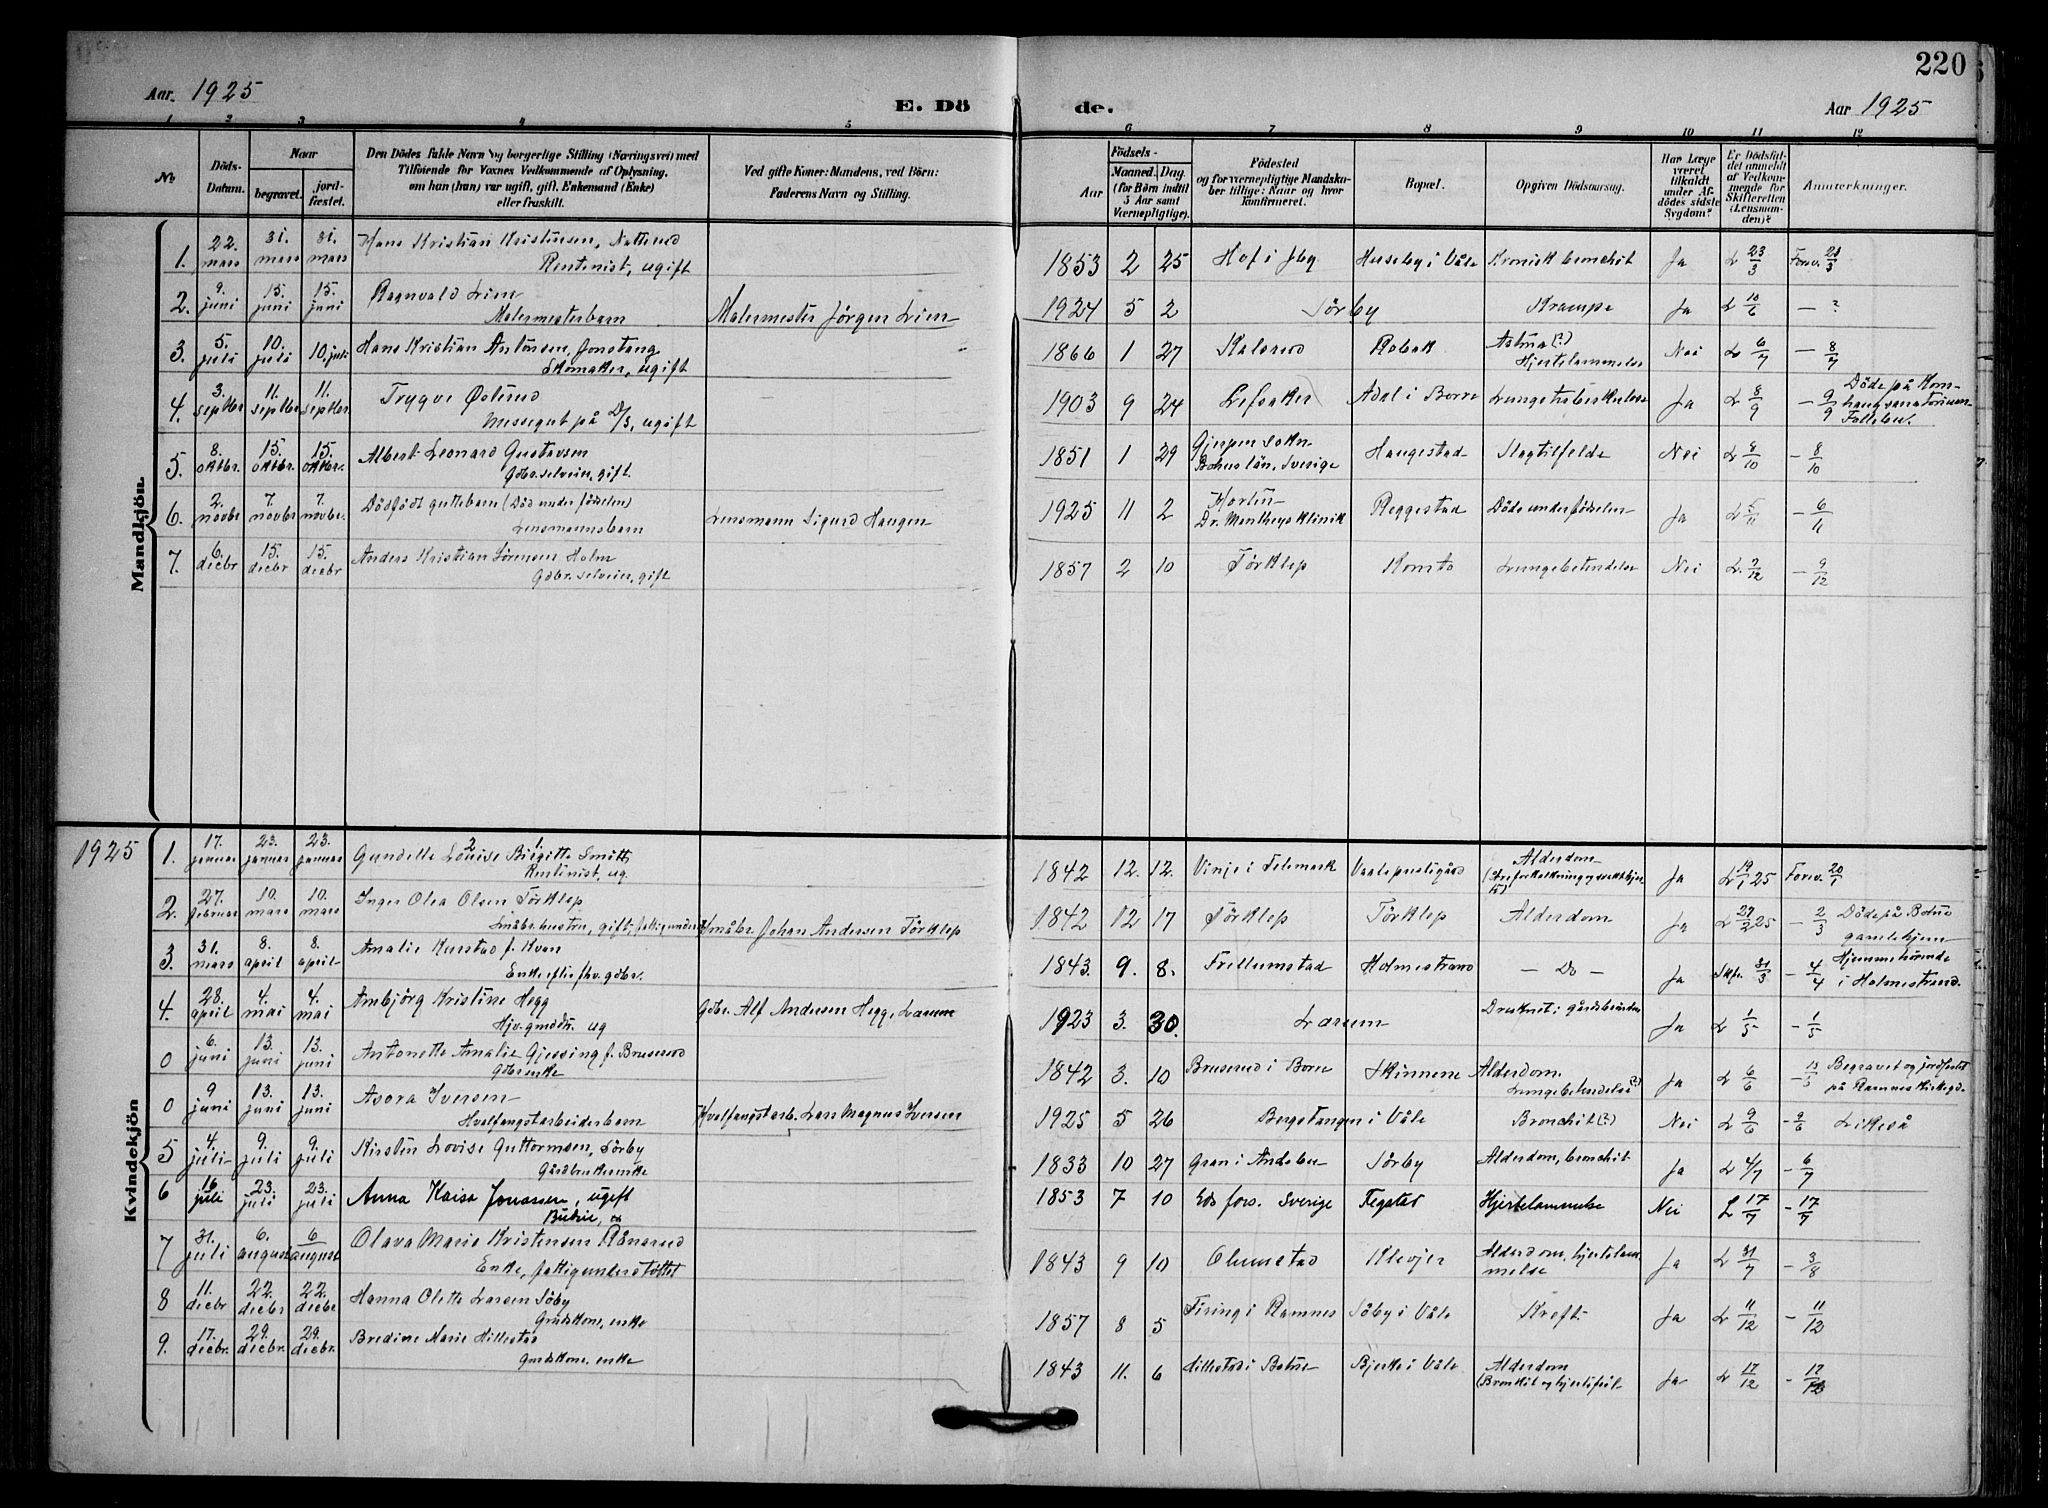 220
Aar. 1925
E. Dö
de.
Aar 1925
1 2 3 4 5 6 7 8 9 10 11 12
No
Döds-
Datum.
Naar
begravet.
jord-
fæstet.
Den Dödes fulde Navn og borgerlige Stilling (Næringsvei) med
Tilföiende for Voxnes Vedkommende af Oplysning,
om han (hun) var ugift, gift, Enkemand (Enke)
eller fraskilt.
Ved gifte Koner: Mandens, ved Börn:
Faderens Navn og Stilling.
Födsels-
Aar
Maaned.
Dag.
(for Börn indtil
5 Aar samt
Værnepligtige).
Födested
og for værnepligtige Mandska-
ber tillige: Naar og hvor
konfirmeret.
Bopæl.
Opgiven Dödsaarsag.
Har Læge
været
tilkaldt
under Af-
dödes sidste
Sygdom?
Er Dödsfal-
det anmeldt
af Vedkom-
mende for
Skifteretten
(Lensman-
den)?
Anmærkninger.
Mandkjön
1. 22. mars 31. mars 31. mars Hans Kristian Kristensen, Natterud
Rentenist, ugift
1853 2 25 Hof i Jby Huseby i Våle Kronisk bronchit Ja L 23/3 Forev. 28/3
2. 9. juni 15. juni 15. juni Ragnvald Lien
Malermesterbarn Malermester Jörgen Lien
1924 5 2 Sörby Krampe Ja L 10/6 — ?
3. 5. juli 10. juli 10. juli Hans Kristian Antonsen, Jonstang
Skomaker, ugift
1866 1 27 Kalsrud Robak Astma (?)
Hjertelammelse Nei L 6/7 — 8/7
4. 3. septbr 11. septbr 11. septbr. Trygve Øderud
Messegut på D/S, ugift
1903 9 24 Lefsaker Adal i Borre Lungetuberkulose Ja L 8/9 — 9/9 Döde på Korn-
haugsanatorium
Follebu.
5. 8. oktbr. 15. oktbr. 15. oktbr. Albert Leonard Gustavsen
Gdbr. selveier, gift
1851 1 29 Gjerpen sokn
Bohuslän, Sverige Haugestad Slagtilfelde Nei L 8/10 — 8/10
6. 2. novbr 7. novbr 7. novbr. Dödfödt guttebarn (Död under födselen)
Lensmannsbarn Lensmann Sigurd Haugen
1925 11 2 Horten
Dr. Mantheys Klinik Reggestad Döde under födselen Ja L 5/11 — 6/11
7. 6. decbr 15. decbr 15. decbr Anders Kristian Sörensen Holm
Gdbr. selveier, gift
1857 2 10 Törklep Komto Lungebetendelse Nei L. 7/12 — 9/12
Kvindekjön
1925
1. 17. januar 23. januar 23. januar Gundelle Louise 2 Birgitte 1. Smitt,
Rentenist, ug.
1842 12. 12. Vinje i Telemark Vaale prestegård Alderdom
Ja L 19/1 25 Forev. 20/1
2. 27. februar 10. mars 10. mars Inger Olea Olsen Törklep
Småbr. hustru, gift, fattigunderst. Småbr. Johan Andersen Törklep
1842 12 17 Törklep Törklep Alderdom Ja L 27/2 25 — 2/3 Döde på Botne
gamlehjem
3. 31. mars 8. april 8. april Amalie Kurstad f. Kvan
Enke efter fhv. gdbr.
1843. 9. 8. Frellumstad Holmestrand — Do — Ja Skf. 31/3 — 4/4 Hjemmehörende
i Holmestrand.
4. 28. april 4. mai 4. mai Ambjörg Kristine Hegg
ug Gdbr. Alf Andersen Hegg, Larum
1923 3. 30. Larum Druknet i gårdsbrönden Ja L 1/5 — 1/5
0 6. juni 13. juni 13. juni Antonette Amalie Gjessing f. Bruserud
Gdbr enke
1842 3. 10 Bruserud i Borre Skinnene Alderdom.
Lungebetendelse (?) Ja L 6/6 Begravet og jordfestet
på Ramnes Kirkegd.
0 9 juni 13. juni 13. juni Asora Iversen
Hvalfangstarbeiderbarn Hvalfangstarb. Lars Magnus Iversen
1925 5 26 Bergstangen i Våle Bronchit (?) Nei L 9/6 — 9/6 Likeså
5 4. juli 9. juli 9. juli Kirstin Lovise Guttormsen, Sörby
Gårdbrukerenke
1833 10 27 Gran i Andebu Sörby Alderdom, bronchit Ja L 4/7 — 6/7
6 16 juli 23. juli 23. juli Anna Kaisa Jonassen, ugift
Budeie,
1853 7 10 Eds fors. Sverige Tegstad Hjertelammelse Nei L 17/7 — 17/7
7 31. juli 6. august 6 august Olava Marie Kristensen Rånerud
Enke, fattigunderstöttet
1843 9 10 Olumstad Klevjer Alderdom, hjertelam-
melse Ja L 31/7 — 3/8
8 11. decbr 22. decbr 22. decbr Hanna Olette Larsen Söby
Grdskone, enke
1857 8 5 Firing i Ramnes Söby i Våle Kreft. Ja L 11/12 — 11/12
9. 17. decbr. 29. decbr. 29. decbr. Bredine Marie Hillestad
Grdskone, enke
1843 11. 6 Hillestad i Botne Bjerke i Våle Alderdom
(Bronkit og hjertefeil Ja L 17/12 — 17/12